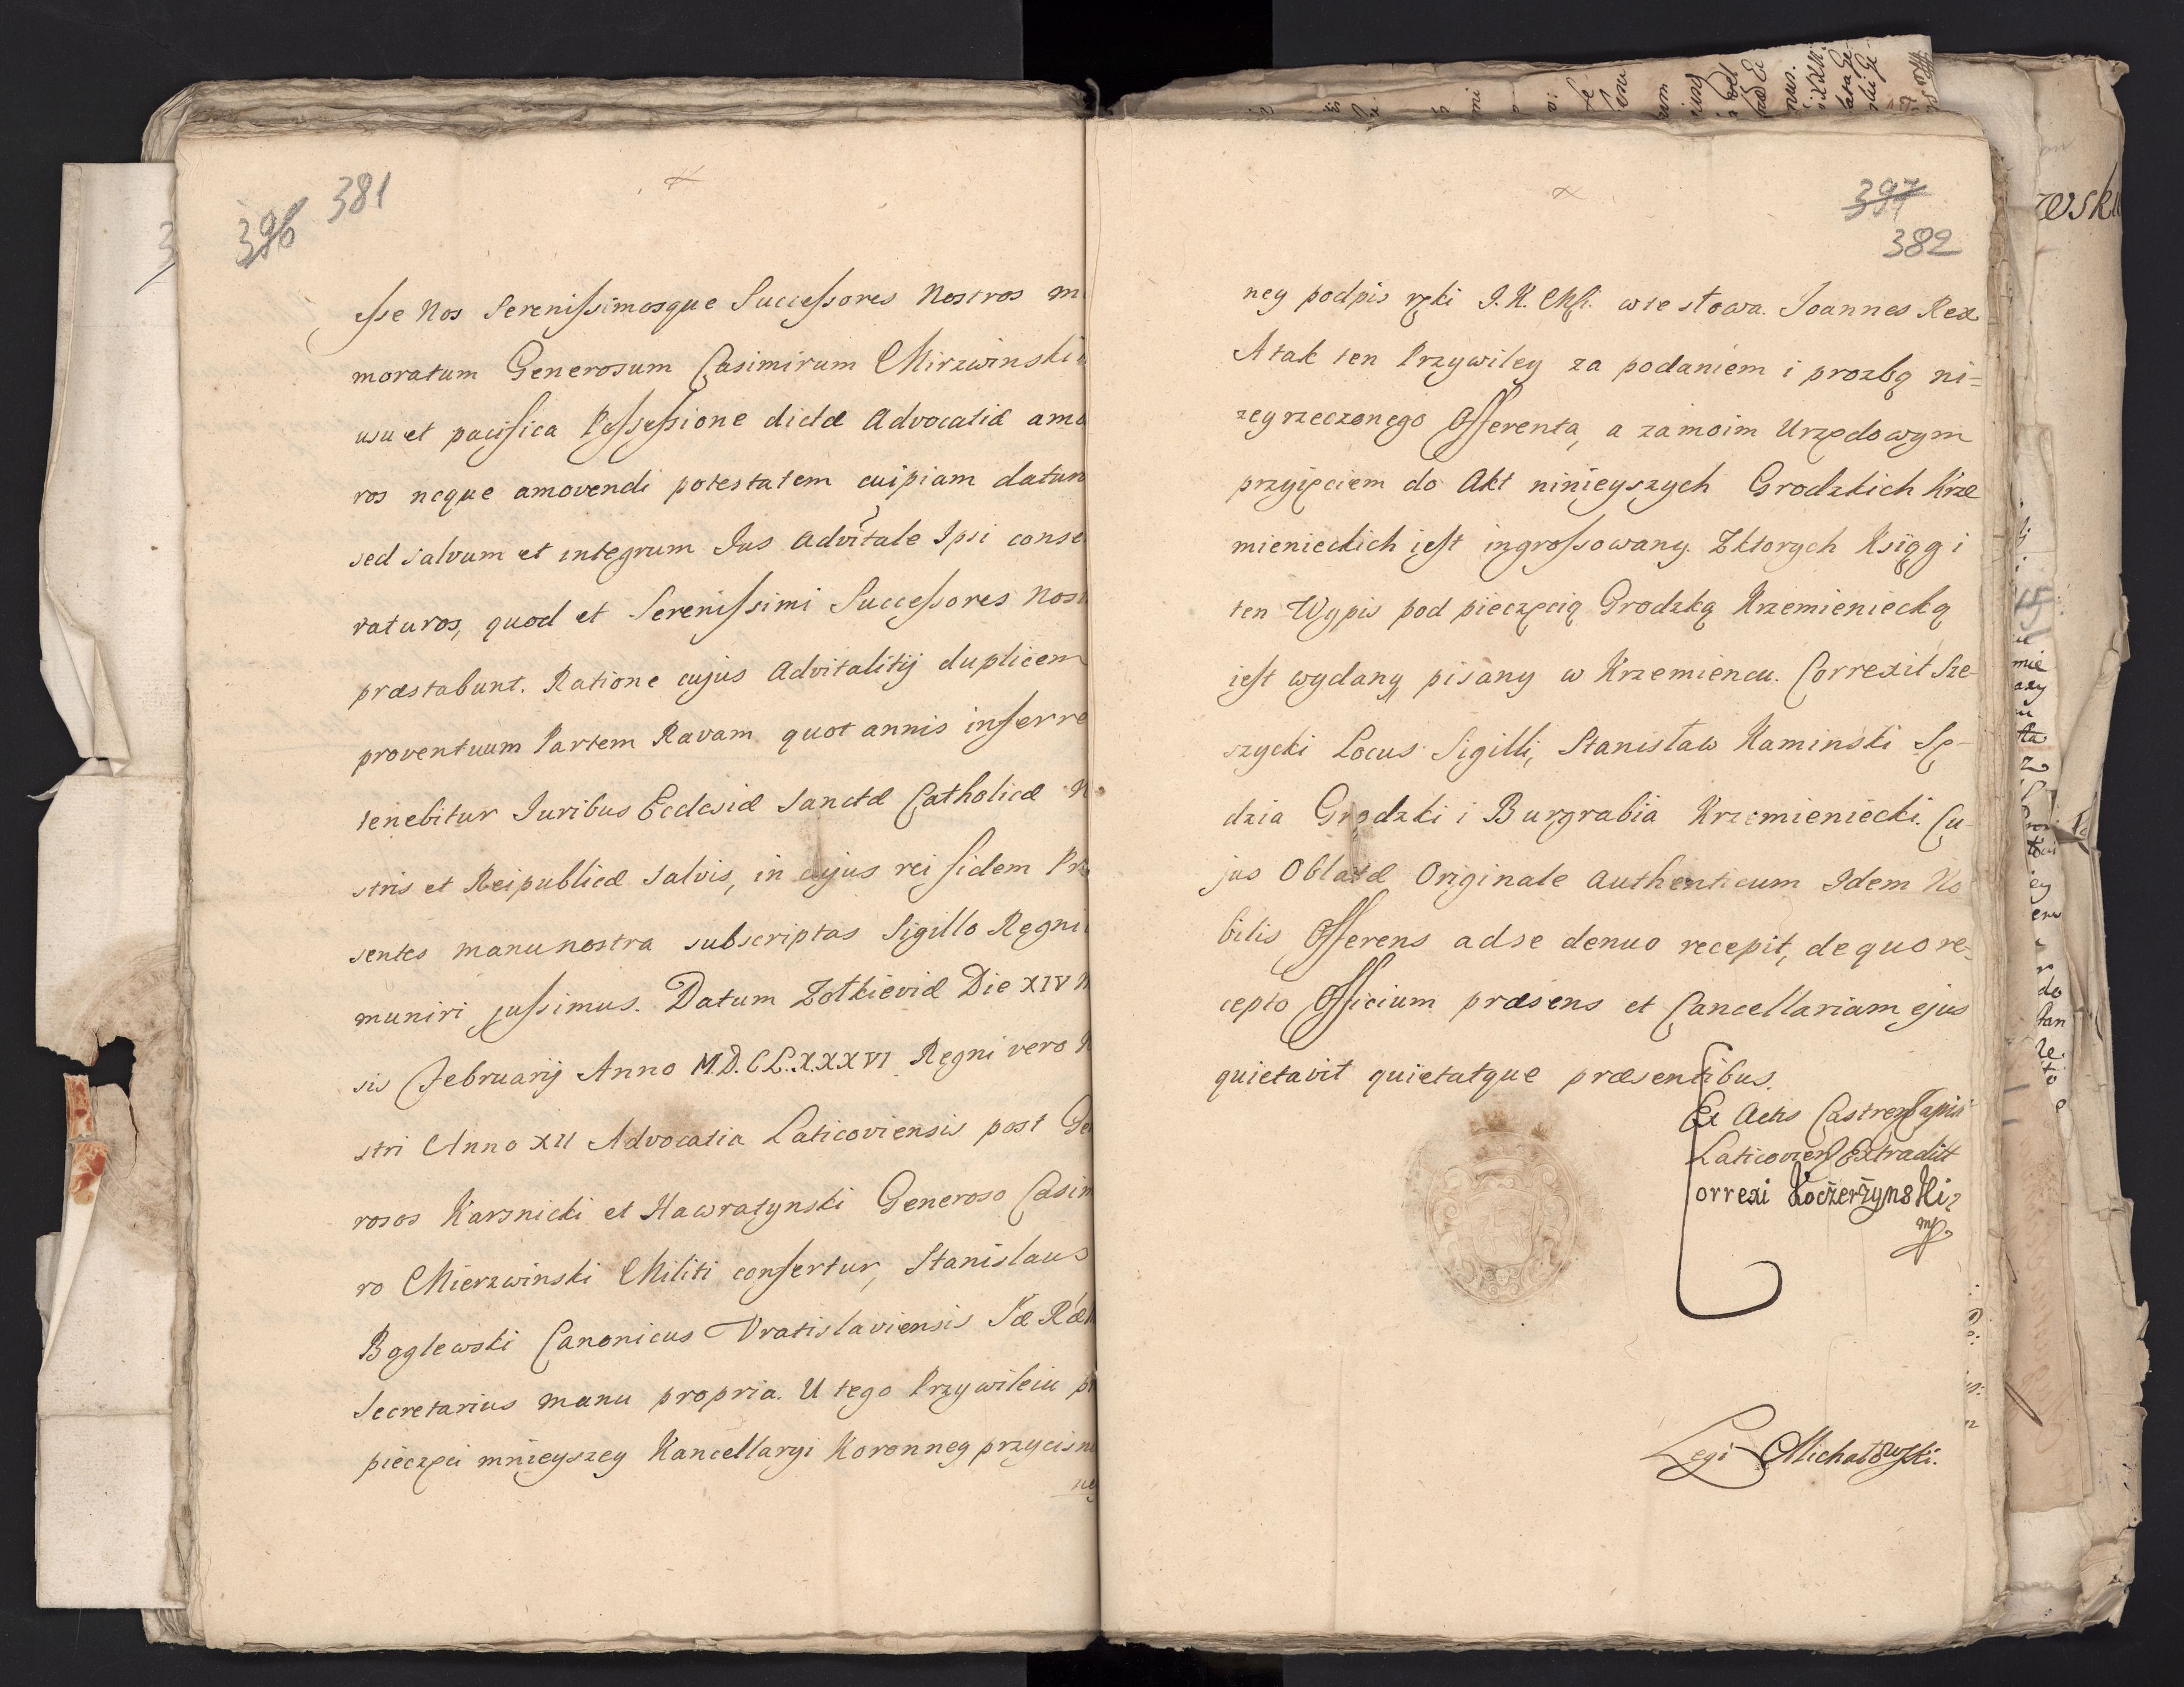 396 381
esse Nos Serenissimosque Successores Nostros m
moratum Generosum Casimirum Mirzwinski
usu et pacifica Possessione dictæ Advocatiæ amo
ros neque amovendi potestatem cuipiam datur
sed salvum et integrum Jus advitale Ipsi conse
raturos, quod et Serenissimi Successores Nos
præstabunt. Ratione cujus Advitalitij duplicem
proventuum Partem Ravam quot annis inferre
tenebitur Juribus Ecclesiæ Sanctæ Catholicæ N
stris et Reipublicæ salvis, in cujus rei fidem Præ
sentes manu nostra subscriptas Sigillo Regni
muniri jussimus. Datum Zołkieviæ Die XIV M
sis Februarij Anno M.D.C.L.X.X.X.VI Regni vero N
stri Anno XII Advocatia Laticoviensis post Ge
rosos Karsnicki et Hawratynski Generoso Casim
ro Mierzwinski Militi confertur, Stanislaus
Boglewski Canonicus Vratislaviensis Sæ Ræ
Secretarius manu propria. U tego Przywileiu pr
pieczęci mnieyszey Kancellaryi Koronney przycisn
ney
397
382
ney podpis ręki J. K. Mści. w te słowa. Joannes Rex
A tak ten Przywiley za podaniem i prozbą ni=
zey rzeczonego Offerenta, a za moim Urzędowym
przyięciem do Akt ninieyszych Grodzkich Krze
mienieckich iest ingrossowany. Z ktorych Ksiąg i
ten Wypis pod pieczęcią Grodzką Krzemieniecką
iest wydany pisany w Krzemiencu. Correxit Sze-
szycki Locus Sigilli, Stanisław Kaminski Sę-
dzia Grodzki i Burgrabia Krzemieniecki. Cu-
jus Oblatæ Originale Authenticum Idem No
bilis Offerens ad se denuo recepit, de quo re-
cepto Officium præsens et Cancellariam ejus
quietavit quietatque præsentibus.
Ex Actis Castren Capit
Laticovien Extradit
Correxi Koczerzynski
mp
Legi Michałowski.